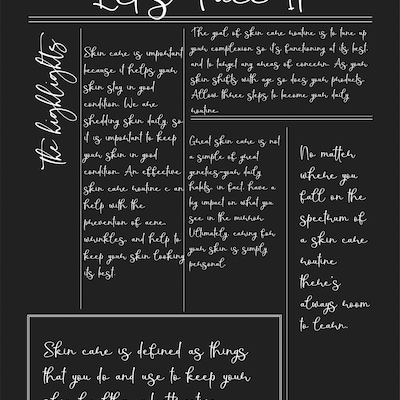 LET'S FACE IT
the highlights
Skin care is important
because it helps your
skin stay in good
condition. We are
shedding skin daily, so
it is important to keep
your skin in good
condition. An effective
skin care routine c an
help with the
prevention of acne,
wrinkles, and help to
keep your skin looking
its best.
The goal of skin care routine is to tune up
your complexion so it's functioning at its best,
and to target any areas of concern. As your
skin shifts with age so does your products.
Allow three steps to become your daily
routine.
Great skin care is not
a simple of great
genetics-your daily
habits, in fact, have a
big impact on what you
see in the mirror.
Ultimately, caring for
your skin is simply
personal.
No matter
where you
fall on the
spectrum of
a skin care
routine
there's
always room
to learn.
Skin care is defined as things
that you do and use to keep your